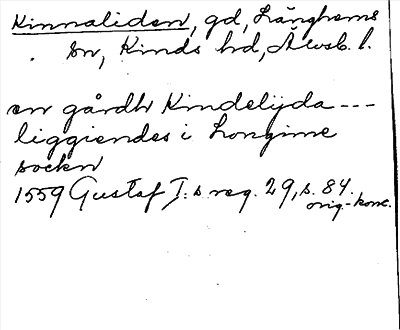 Kinnaliden, gd, Länghems
sn, Kinds hd, Älvsb. l.
en gårdh Kindelijda ---
liggiendes i Longime
sockn
1559 Gustaf I:s reg. 29, s. 84.
orig.-konc.